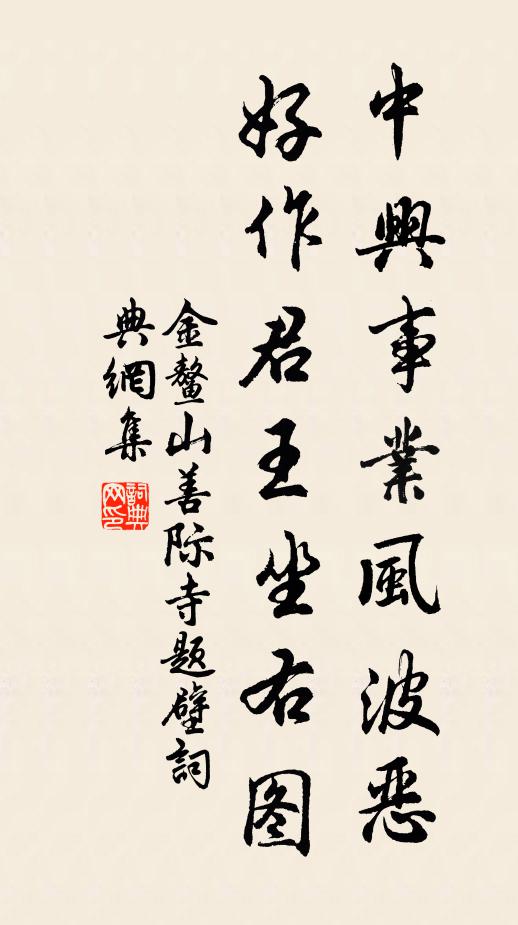 中興事業風波惡
好作君王坐右图
金鳌山善际寺题壁詞
典網集
詞典网印